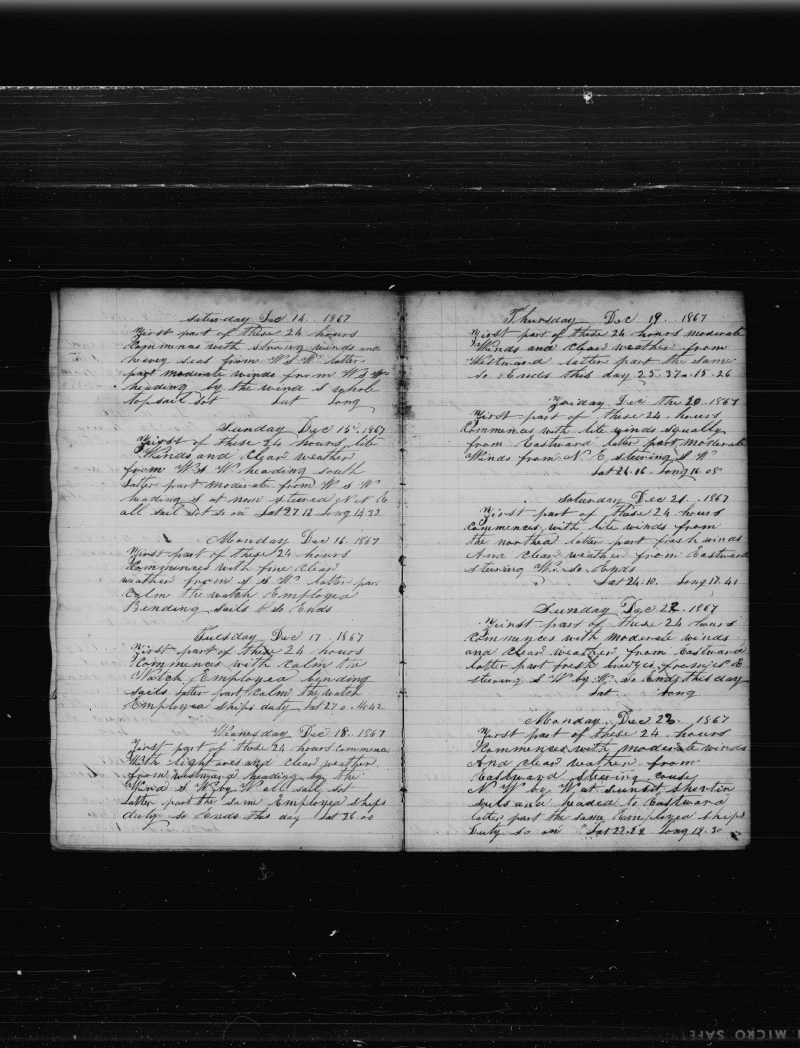 Saturday Dec 14 1867
First part of these 24 hours
Commences with strong winds and
heavey seas from W S W latter
part moderate winds from W S W
heading by the wind S whole
topsail Sot Lat Long
Sunday Dec 15 1867
First of these 24 hours lite
Winds and Clear weather
from W S W heading south
Latter part moderate from W S W
heading S at noon steered N N E
all sail Sot so on Lat 27.12 Long 14.32
Monday Dec 16 1867
First part of these 24 hours
Commences with fine Clear
weather from S S W latter par
Calm the watch Employed
Bending sails &so Ends
Tuesday Dec 17 1867
First part of these 24 hours
Commences with Calm the
Watch Employed bending
sails latter part Calm the watch
Employed ships duty Lat 27.0 14.42
Wenesday Dec 18 1867
First part of these 24 hours Commence
With light ares and Clear weather
from westward heading by the
Wind S W by W all sail Sot
Latter part the same Employed ships
duty so Ends this day Lat 26.00
Thursday Dec 19 1867
First part of these 24 hours moderate
Winds and Clear weather from
Westward latter part the same
So Ends this day 25.37 15.26
Friday Dec the 20 1867
First part of these 24 hours
Commences with lite winds squally
from Eastward latter part Moderate
Winds from N E steering S W
Lat 24.16 Long 16.05
Saturday Dec 21 1867
First part of these 24 hours
Commences with lite winds from
the northed latter part fresh winds
And Clear weather from Eastward
steering W. So Ends
Lat 24.10 Long 17.41
Sunday Dec 22 1867
First part of these 24 hours
Commences with Moderate winds
and Clear weather from Eastward
latter part fresh breezes from N E
steering S W by W So Ends this day
Lat Long
Monday Dec 1867
First part of these 24 hours
Commences with moderate winds
And Clear weather from
Eastward steering Couse
N W by W at sunset shortin
sails and headed to Eastward
latter part the same Employed ships
Duty so on Lat 22.22 Long 19.30
MICRO SAFE